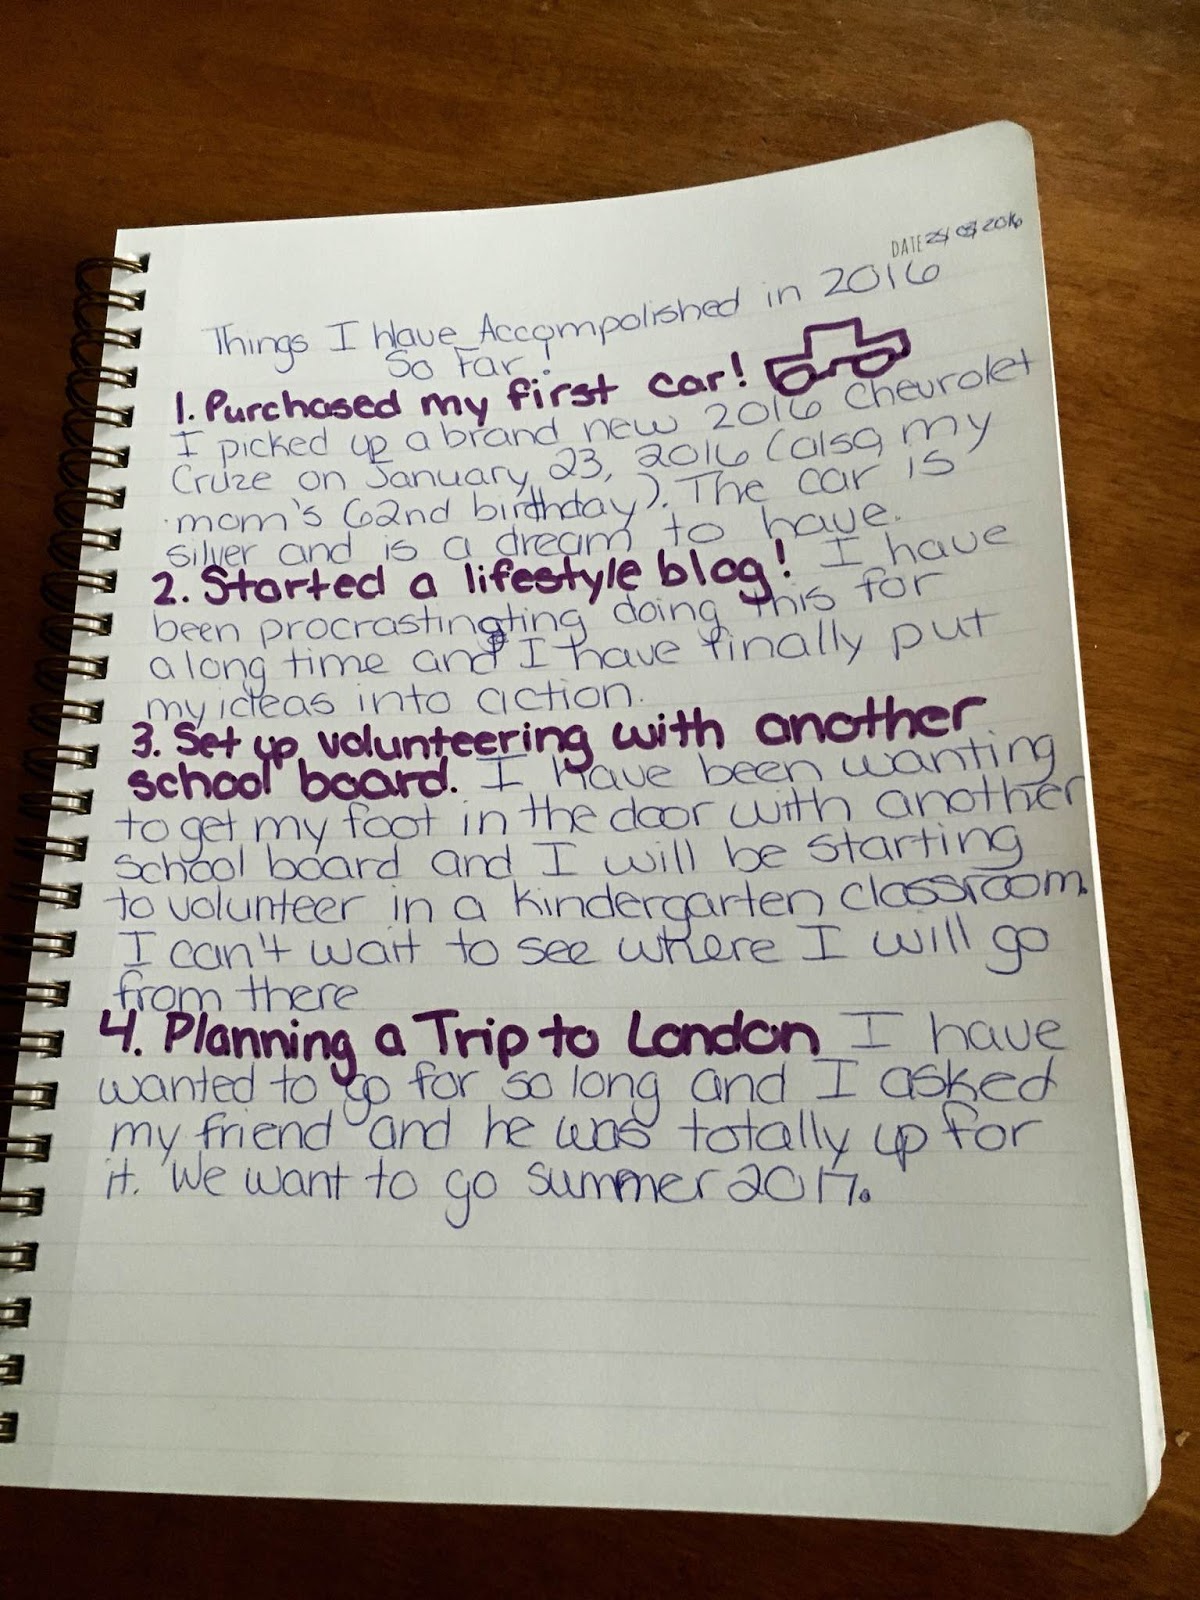 DATE 2016
Things I Have Accompolished in 2016
So Far!
1. Purchased my first car!
I picked up a brand new 2016 Chevrolet
Cruze on January 23, 2016 (also my
mom's 62nd birthday). The car is
silver and is a dream to have.
2. Started a lifestyle blog! I have
been procrastingting doing this for
a long time and I have finally put
my ideas into action.
3. Set up volunteering with another
school board. I have been wanting
to get my foot in the door with another
school board and I will be starting
to volunteer in a kindergarten classroom.
I can't wait to see where I will go
from there
4. Planning a Trip to London I have
wanted to go for so long and I asked
my friend and he was totally up for
it. We want to go summer 2017.